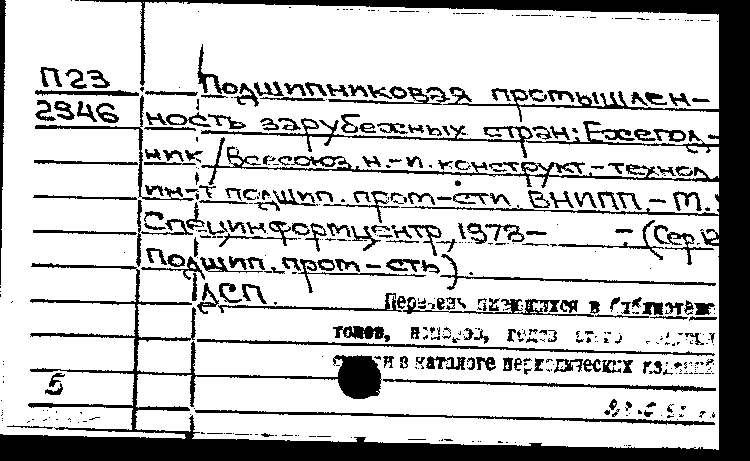 П23
2946
Подшипниковая промышлен-
ность зарубежных стран: Ежегод-
ник / Всесоюз. н.-и. конструкт.-технол.
ин-т подшип. пром-сти. ВНИПП. - М.:
Специнформцентр, 1973- . - (Сер. 12
Подшип. пром-сть).
ДСП.
Перечень имеющихся в библиотеке
томов, номеров, годов этого издания
смотри в каталоге периодических изданий
5